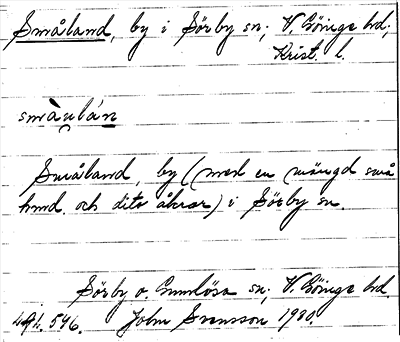 Småland, by i Sörby sn; V. Göinge hd;
Krist. l.
smàu̯lán
Småland, by (med en mängd små
hmd. och dito åkrar) i Sörby sn.
Sörby o. Gumlösa sn; V. Göinge hd.
546. John Svensson 1930.